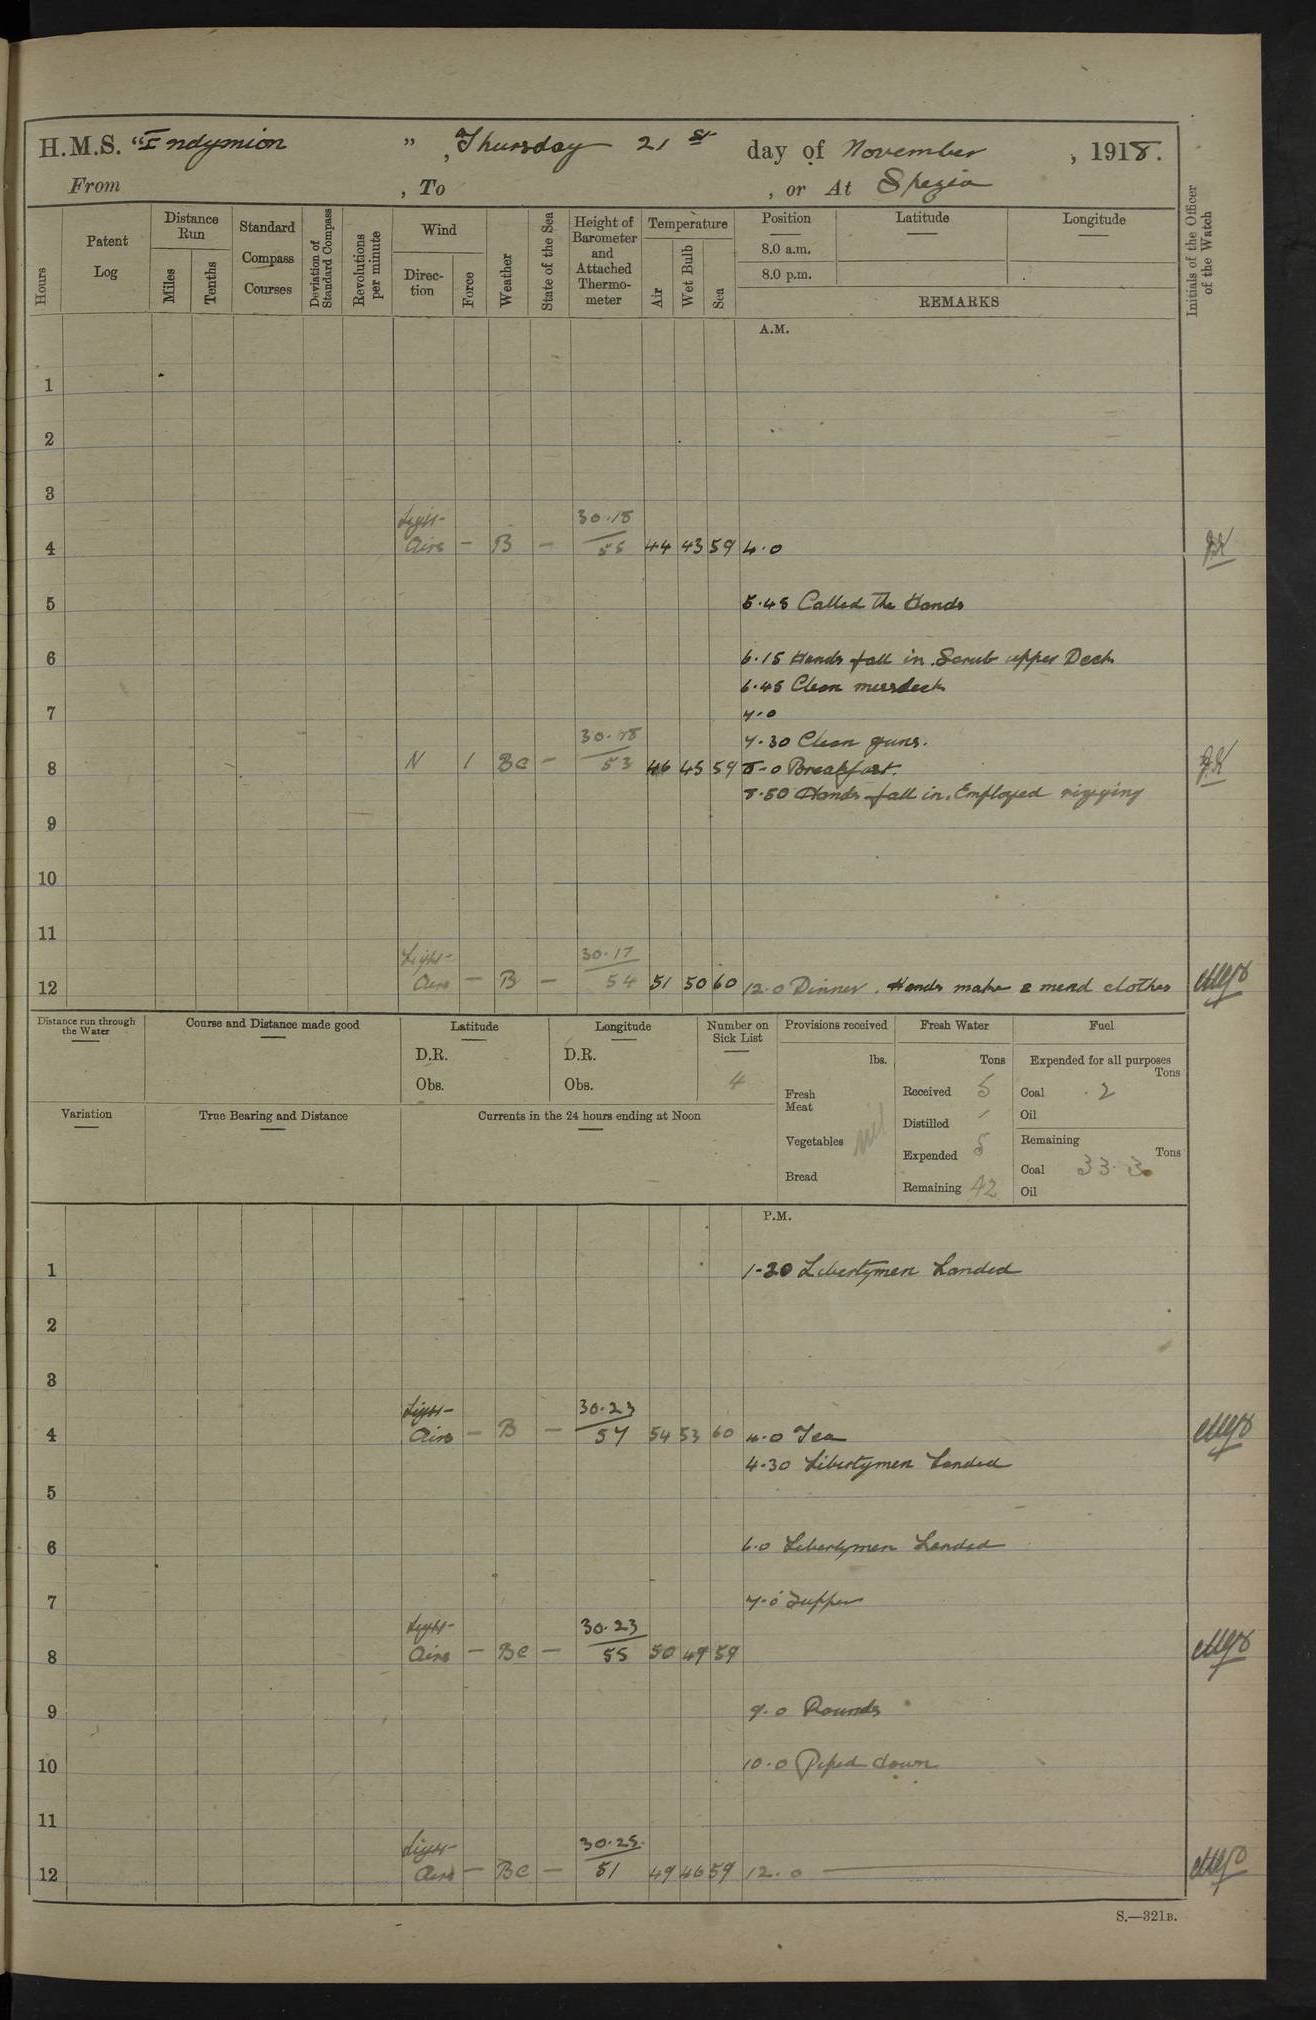 H.M.S. "Endymion", Thursday 21st day of November, 1918.
From , To , or At Spezia
Hours
Patent Log
Distance Run
Miles
Tenths
Standard Compass Courses
Deviation of Standard Compass
Revolutions per minute
Wind
Direction
Force
Weather
State of the Sea
Height of Barometer and Attached Thermometer
Temperature
Air
Wet Bulb
Sea
Position
8.0 a.m.
8.0 p.m.
Latitude
Longitude
REMARKS
Initials of the Officer of the Watch
A.M.
1
2
3
Light 30.18
4 Airs - B - 55 44 43 59 4.0
5 5.45 Called the Hands
6 6.15 Hands fall in. Scrub upper Deck
6.45 Clean messdeck
7 7.0
30.18 7.30 Clean guns.
8 N 1 BC - 53 46 45 59 8.0 Breakfast.
8.50 Hands fall in. Employed rigging
9
10
11
Light 30.17
12 Airs - B - 54 51 50 60 12.0 Dinner. Hands make & mend clothes
Distance run through the Water
Course and Distance made good
Latitude
D.R.
Obs.
Longitude
D.R.
Obs.
Number on Sick List
4
Variation
True Bearing and Distance
Currents in the 24 hours ending at Noon
Provisions received
lbs.
Fresh Meat
Vegetables nil
Bread
Fresh Water
Tons
Received 5
Distilled /
Expended 5
Remaining 42
Fuel
Expended for all purposes
Tons
Coal 2
Oil
Remaining
Tons
Coal 333
Oil
P.M.
1 1-30 Libertymen Landed
2
3
Light 30.23
4 Airs - B - 57 54 53 60 4.0 Tea
4-30 Libertymen Landed
5
6 6.0 Libertymen Landed
7 7.0 Supper
Light 30.23
8 Airs - BC - 55 50 49 59
9 9.0 Rounds
10 10.0 Piped down
11
Light 30.25
12 Airs - BC - 51 49 46 59 12.0
S.—321B.